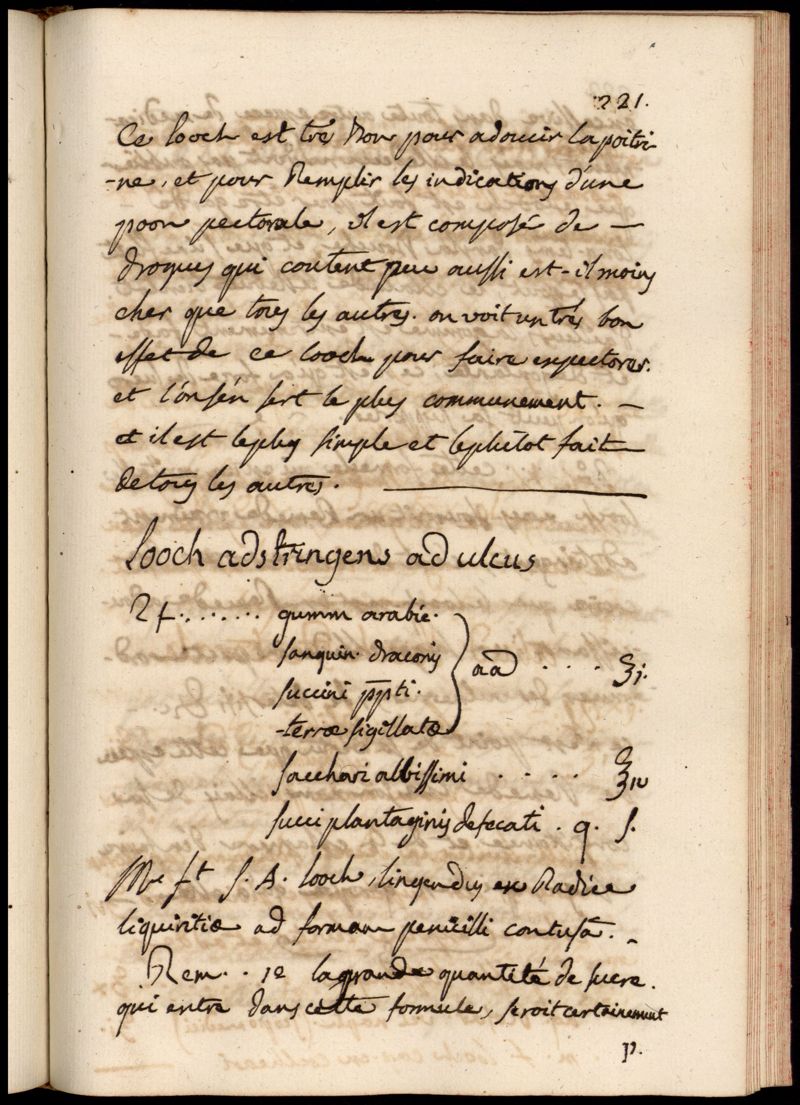 221.
Ce looch est trés Bon pour adoucir la poitri-
-ne, et pour Remplir les indications d'une
poon pectorale, il est composé de —
drogues qui coutent peu aussi est-il moins
cher que tous les autres. on voit un trés bon
effet de ce looch pour faire expectorer.
et l'on s'én sert le plus communement. —
et il est le plus simple et le plûtot fait
de tous les autres.
Looch adstringens ad ulcus
♃. . . . . . . gumm arabic.
sanguin. draconis
succini ppti.
terræ sigillatæ } aã . . . . ʒj.
sacchari albissimi . . . . . ℥iv
succi plantaginis defecati . q. s.
Me ft S. A. looch, lingendus ex Radice
liquiritiæ ad formam penicilli contusâ. _
Rem. . 1e la grande quantité de sucre.
qui entre dans cette formule, seroit certainement
p.